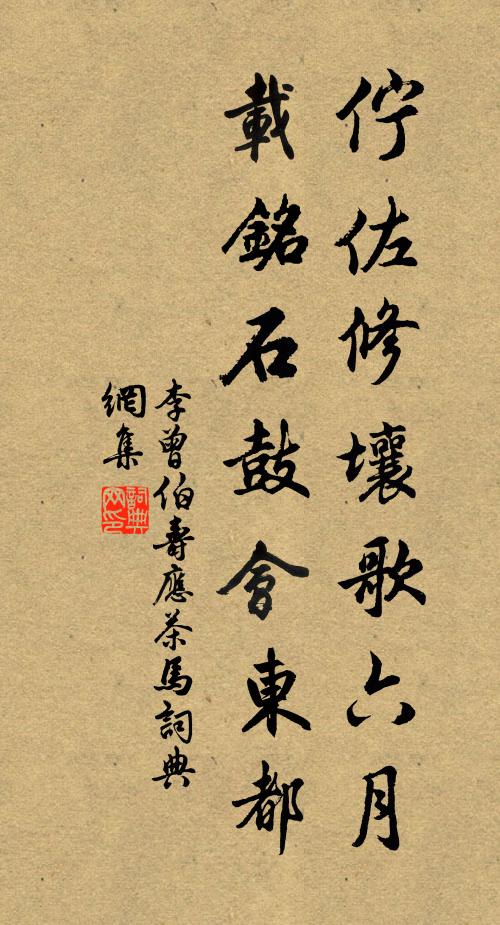 佇佐修壤歌六月
載銘石鼓會東都
李曾伯壽應茶馬詞典
網集
詞典網印